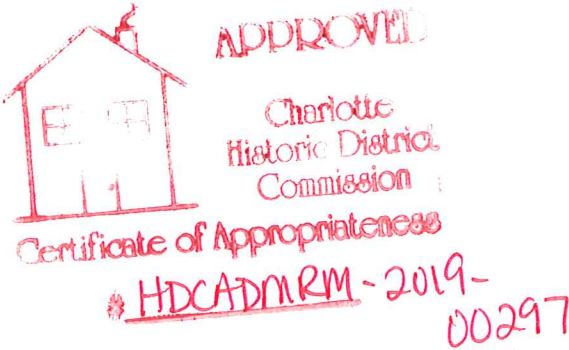 APPROVED
Charlotte
Historic District
Commission
Certificate of Appropriateness
# HDCADMRM-2019-
00297